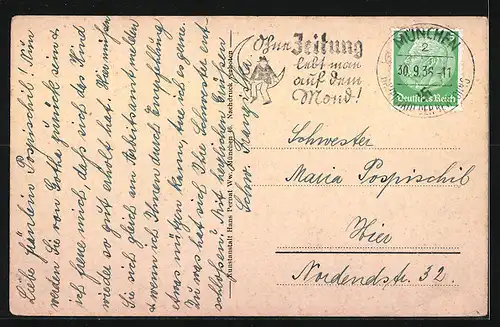 Liebe Fräulein Pospischil! Nun
werden Sie von Gotha zurück sein u.
ich freue mich, daß sich das Kind
wieder so gut erholt hat. Hier müssen
Sie sich gleich am Arbeitsamt melden
u. wenn ich Ihnen durch Empfehlung
etwas nützen kann, tue ich es gerne.
Zu was hat sich Ihre Schwester ent-
schlossen? Mit herzlichen Grüßen
Schw.
Kunstanstalt Hans Pernat Ww., München Nachdruck verboten
Ohne Zeitung
lebt man
auf dem
Mond!
MÜNCHEN
2
30.9.36.-11
HAUPTSTADT DER BEWEGUNG
Deutsches Reich
Schwester
Maria Pospischil
Hier
Nordendstr. 32